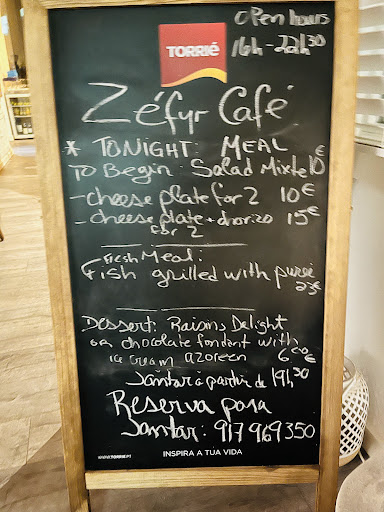 TORRIÉ
Open hours
16h - 22h30
Zéfyr Café
* TONIGHT: MEAL
To Begin: Salad Mixte 10€
- cheese plate for 2 10€
- cheese plate + chorizo 15€
for 2
Fresh Meal:
Fish grilled with puréi
23€
Dessert: Raisins Delight
or chocolate fondant with
ice cream azoreen 6€00
Jantar à partir de 19h30
Reserva para
Jantar: 917 969 350
WWW.TORRIE.PT
INSPIRA A TUA VIDA